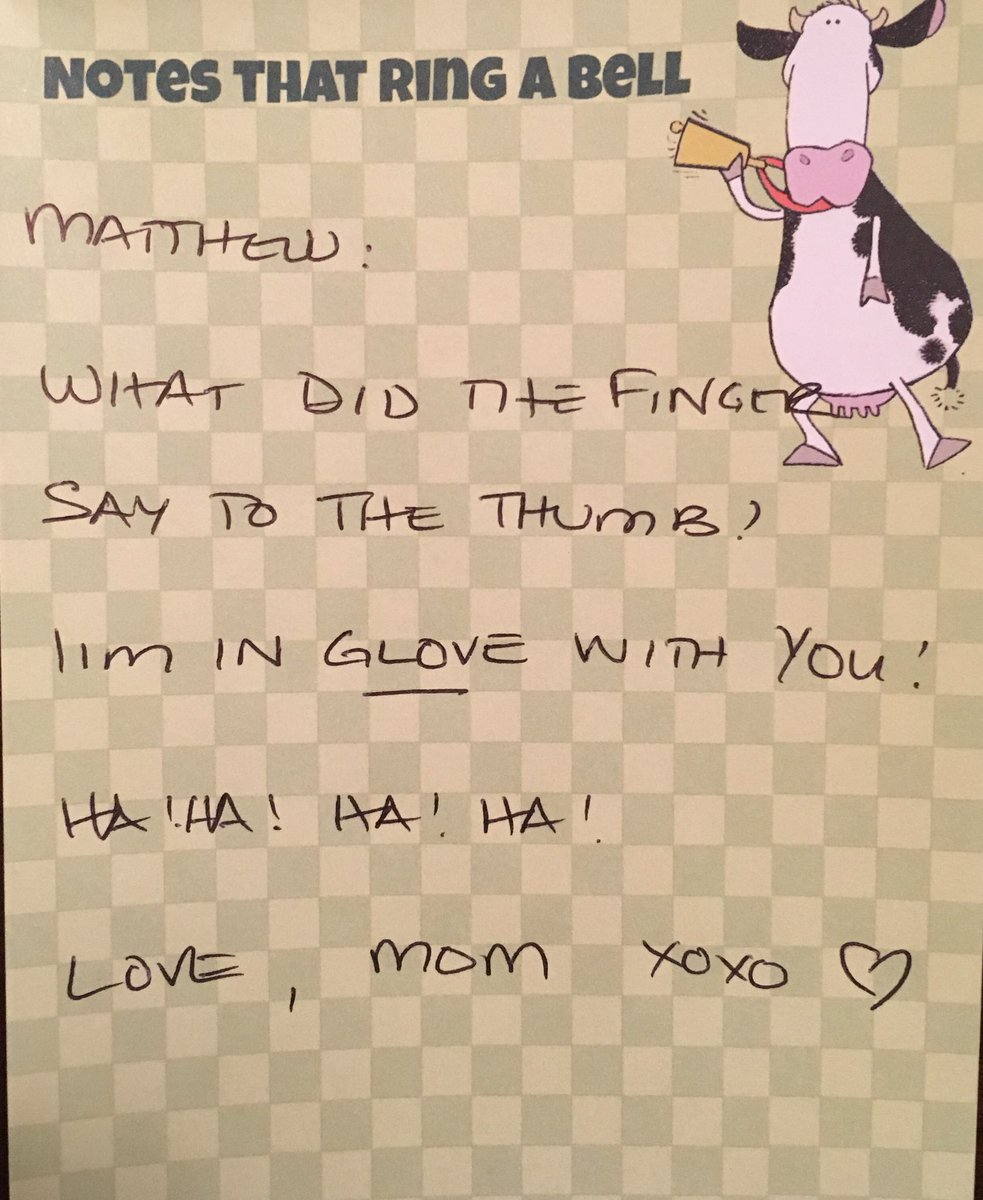 NOTES THAT RING A BELL
MATTHEW:
WHAT DID THE FINGER
SAY TO THE THUMB?
I'M IN GLOVE WITH YOU!
HA! HA! HA! HA!
LOVE, MOM XOXO ♡